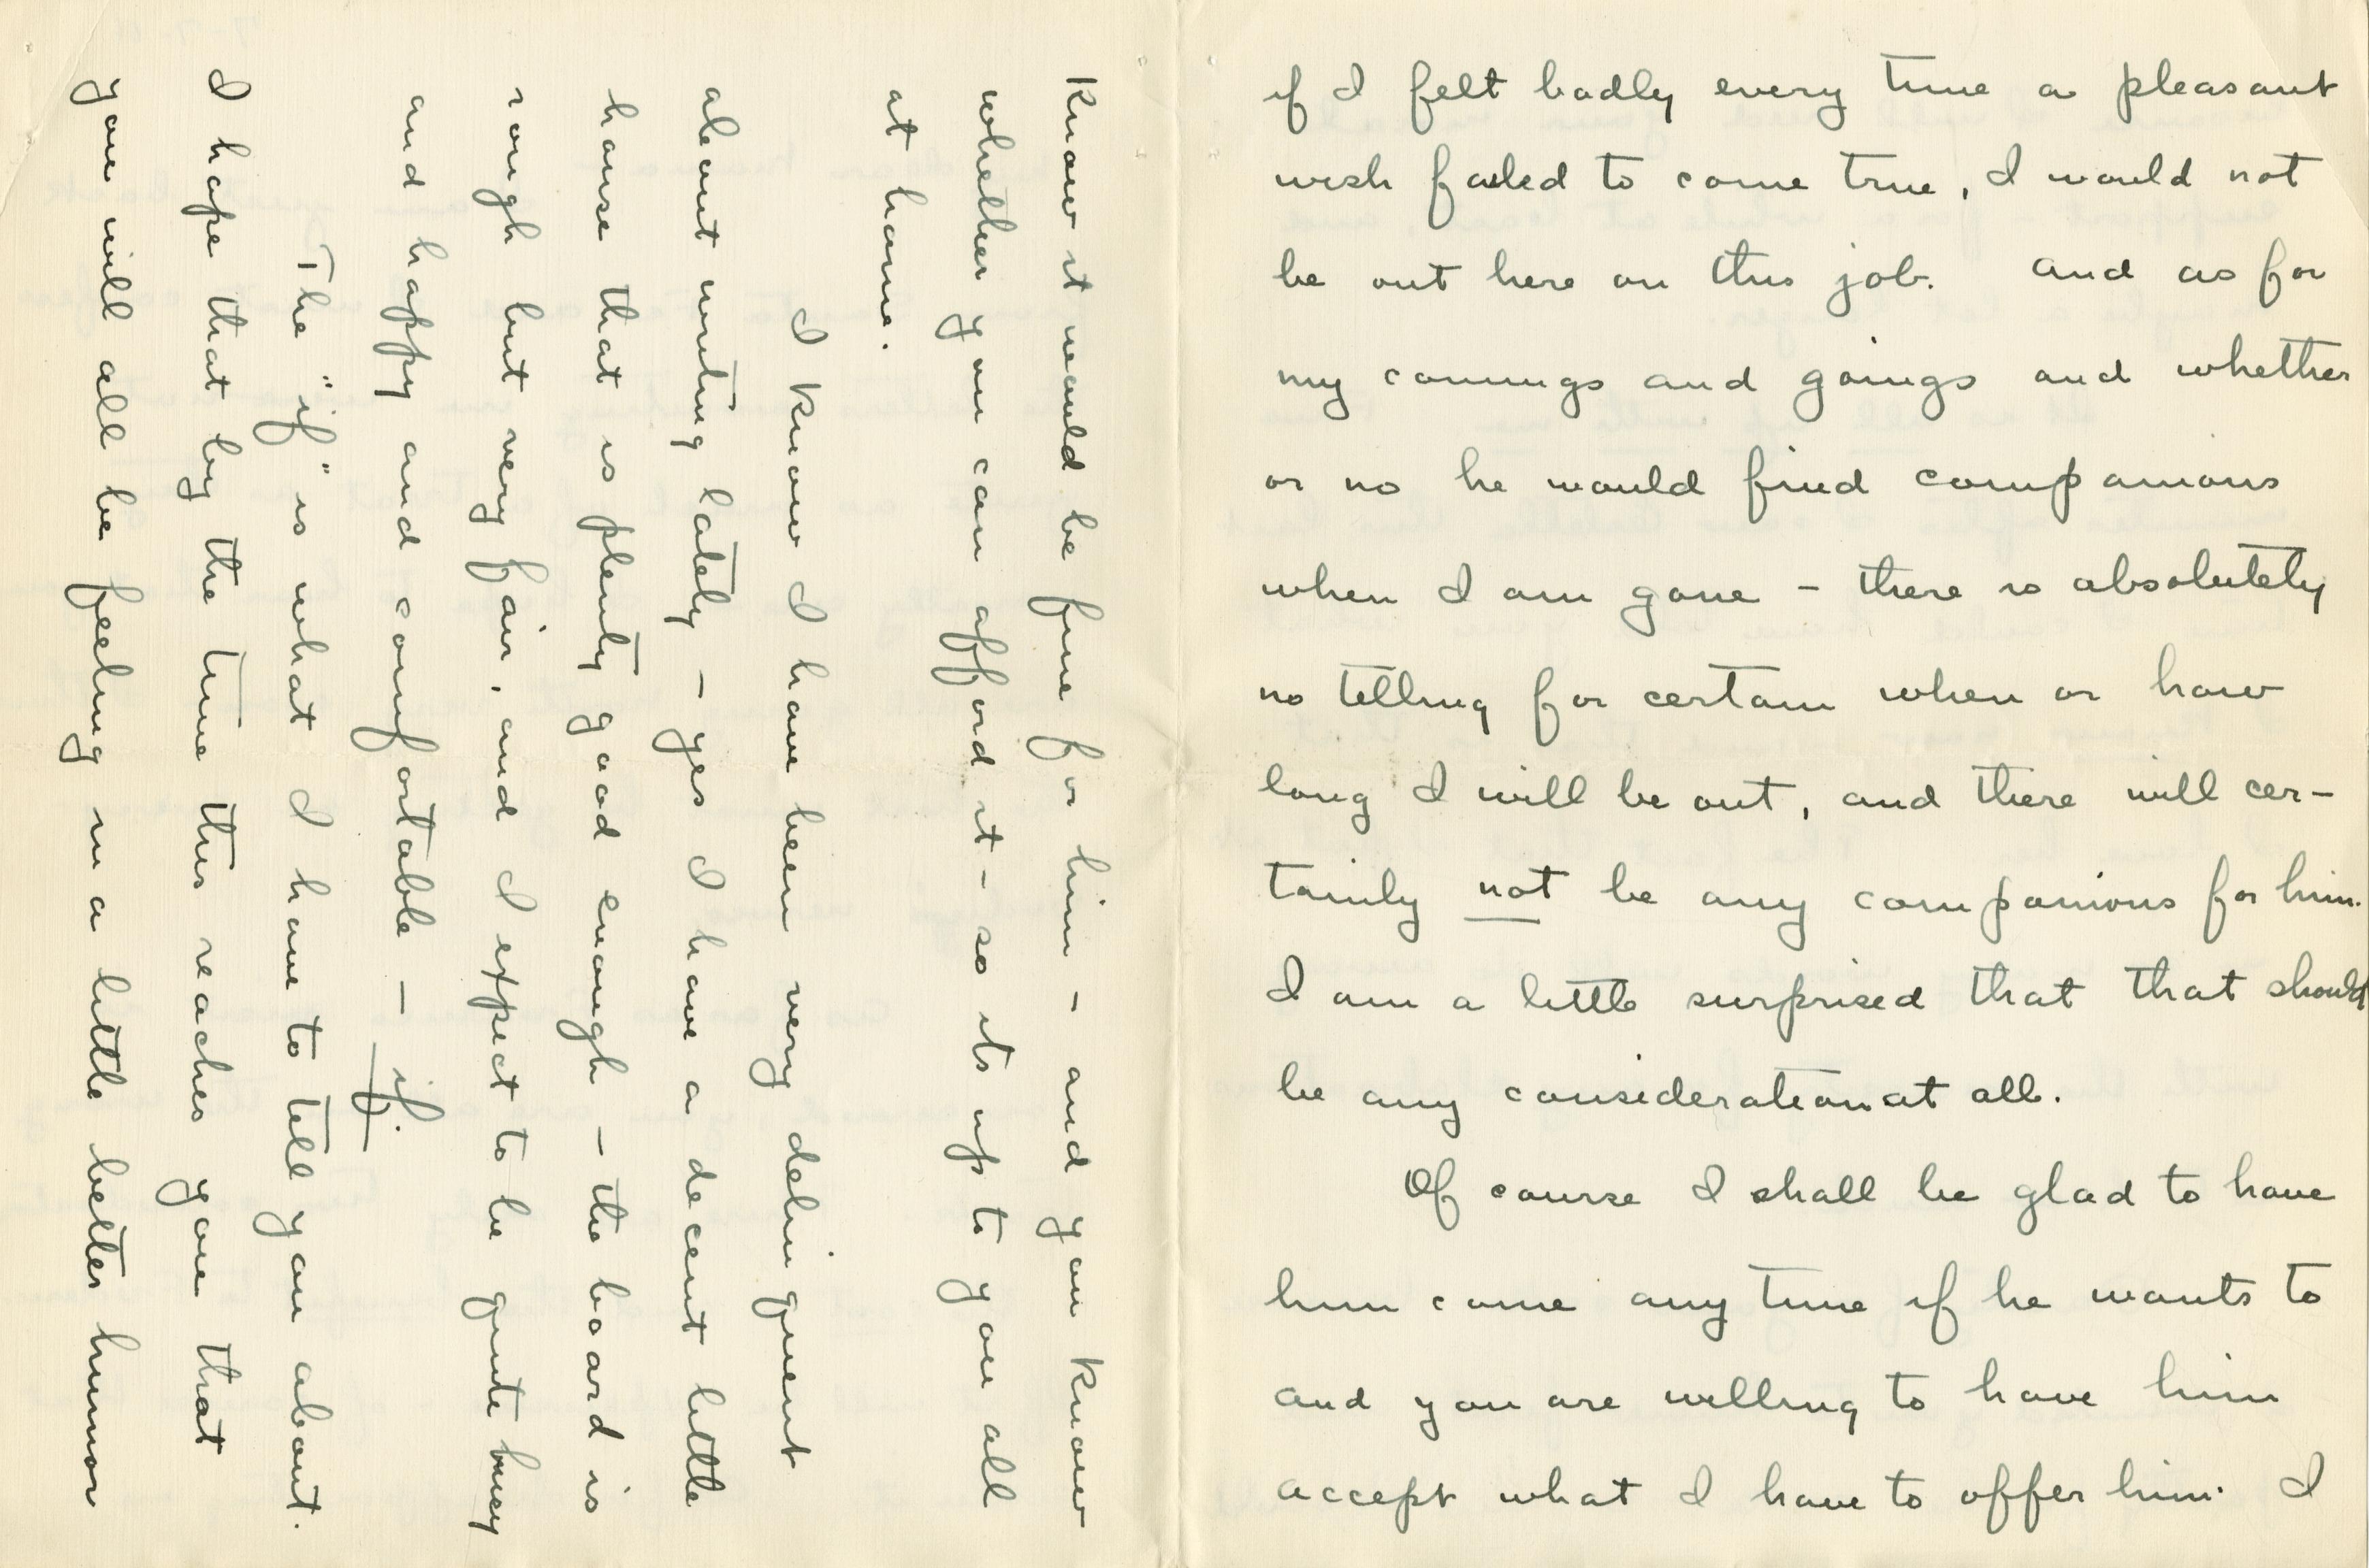 if I felt badly every time a pleasant
wish failed to come true, I would not
be out here on this job. and as for
my comings and goings and whether
or no he would find companions
when I am gone – there is absolutely
no telling for certain when or how
long I will be out, and there will cer-
tainly not be any companions for him.
I am a little surprised that that should
be any consideration at all.
Of course I shall be glad to have
him come any time if he wants to
and you are willing to have him
accept what I have to offer him. I
know it would be fine for him – and you know
whether you can afford it – so its up to you all
at home.
I know I have been very delinquent
about writing lately – yes I have a decent little
house that is plenty good enough – the board is
rough but very fair, and I expect to be quite busy
and happy and comfortable – if.
The "if" is what I have to tell you about.
I hope that by the time this reaches you that
you will all be feeling in a little better humor